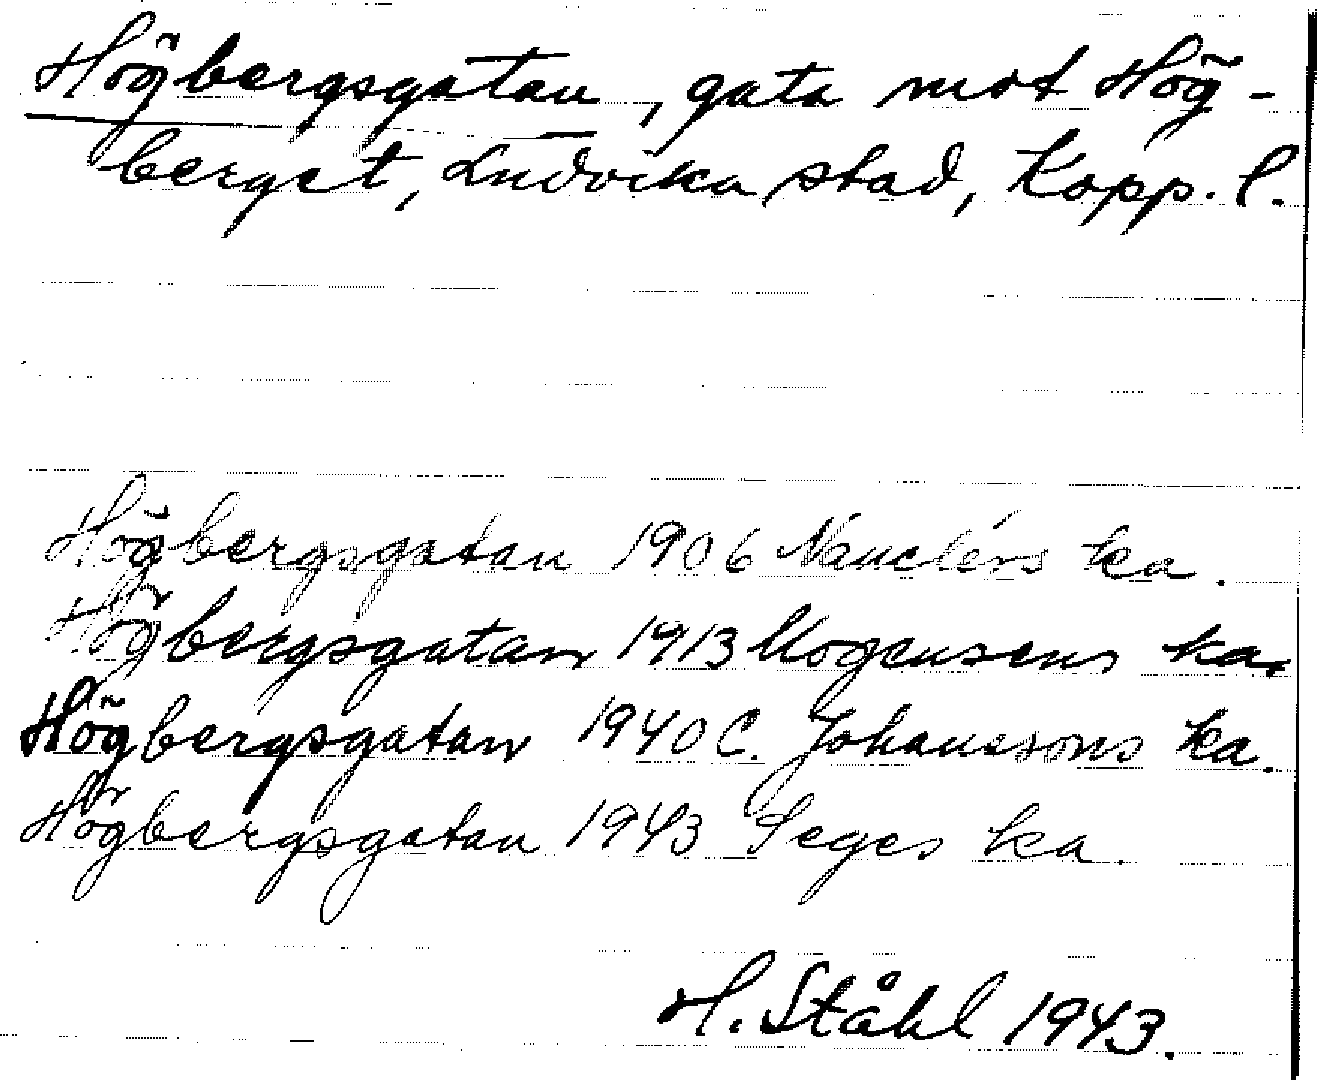 Högbergsgatan, gata mot Hög-
berget, Ludvika stad, Kopp. l.
Högbergsgatan 1906 Nauclérs ka.
Högbergsgatan 1913 Mogensens ka.
Högbergsgatan 1940 C. Johanssons ka.
Högbergsgatan 1943 Seges ka.
H. Ståhl 1943.